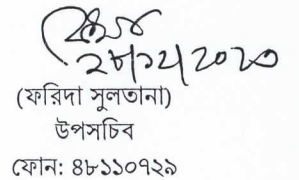 ২৮/১২/২০২৩
(ফরিদা সুলতানা)
উপসচিব
ফোন: ৪৮১১০৭২৯